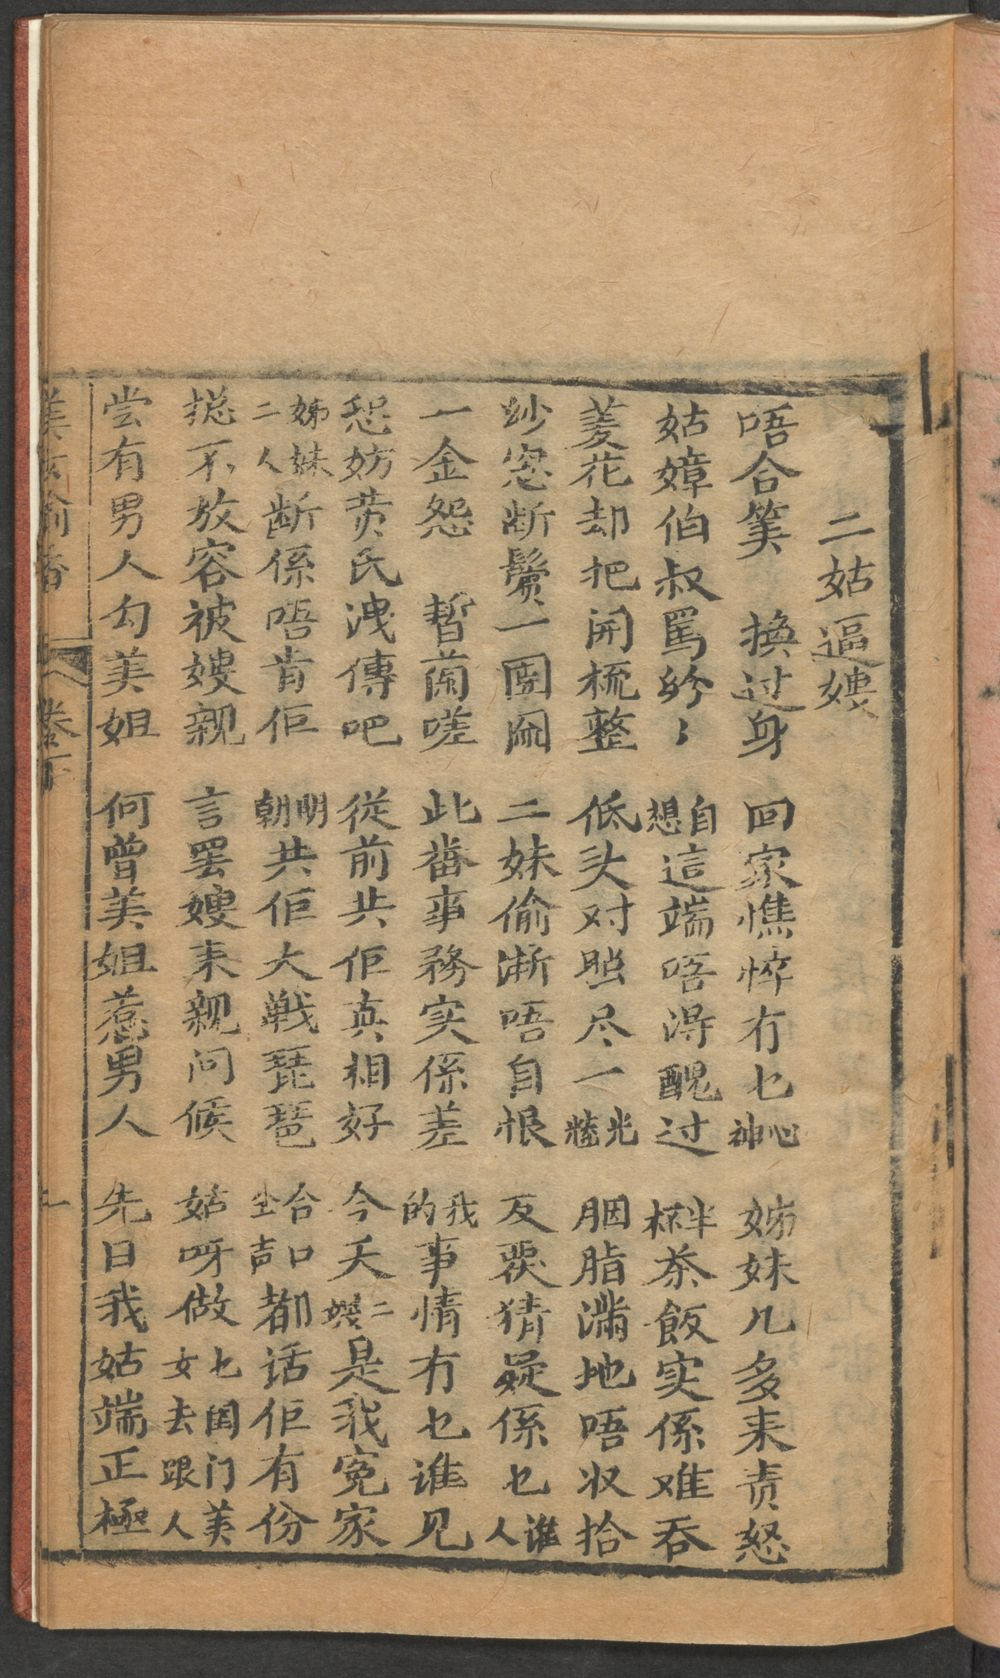 二姑逼嫂
唔合笑　換过身　回家憔悴冇乜心神　姊妹几多来责怒
姑嫜伯叔骂紛〻　自想這端唔淂醜过　半杯茶飯实係难吞
菱花却把開梳整　低头对照尽一光蟮　胭脂滿地唔收拾
纱窓断鬓一團闹　二妹偷渐唔自恨　反覆猜疑係乜谁人
一金怨　暂蘭嗟　此番事務实係差　我的事情冇乜谁见
恐妨黄氏洩傳吧　從前共佢真相好　今天二嫂是我冤家
姊妹二人断係唔肯佢　明朝共佢大戦琵琶　合口尘声都话佢有份
捴不放容被嫂親　言罢嫂来親问候　姑呀做乜闺门美女去跟人
尝有男人勾美姐　何曾美姐惹男人　先日我姑端正極
偷香　卷下　一